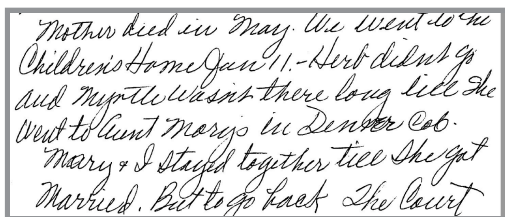 Mother died in May. We went to the
Children's Home Jun 11.- Herb didnt go
and Myrtle wasnt there long till She
went to Aunt Marys in Denver Colo.
Mary & I stayed together till She got
Married. But to go back The Court